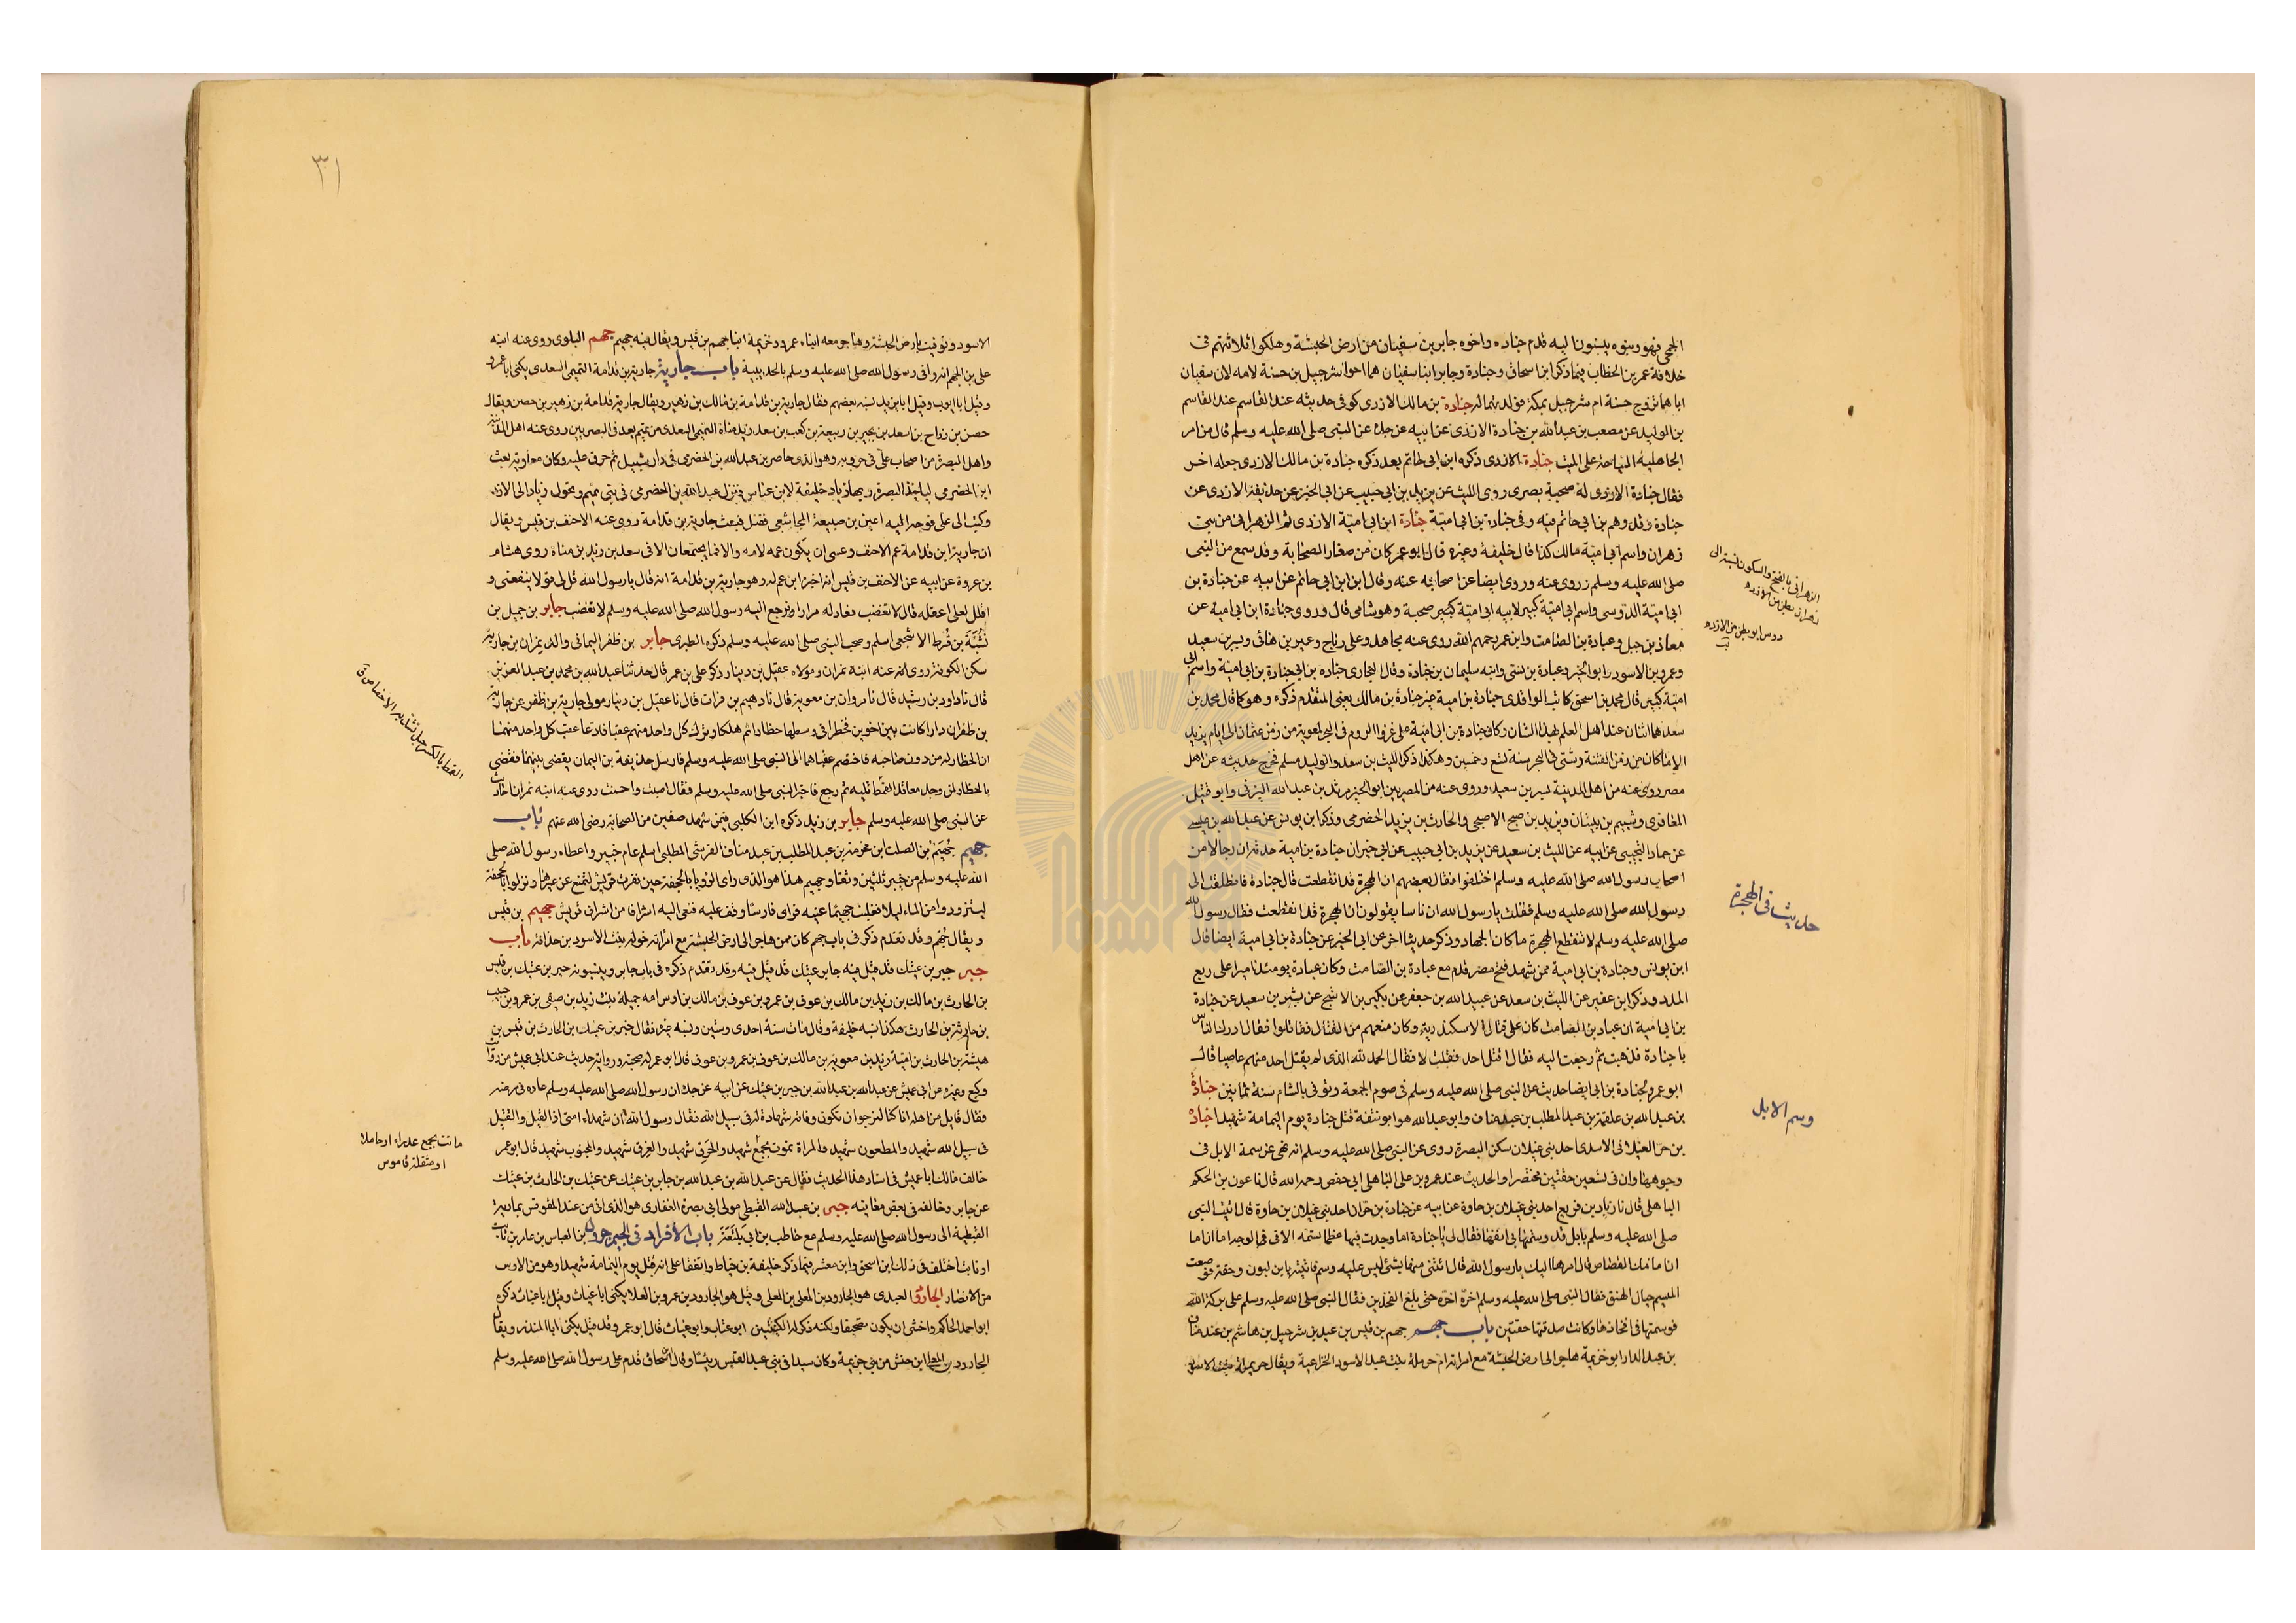 الجمحي فهو وبنوه ينسبون اليه قدم جنادة واخوه جابر بن سفيان من ارض الحبشة وهلكوا ثلاثتهم في
خلافة عمر بن الخطاب فيما ذكر ابن اسحاق وجنادة وجابر ابنا سفيان هما اخوا شرحبيل بن حسنة لامه لان سفيان
اباهما تزوج حسنة ام شرحبيل بمكة فولدتهما له جنادة بن مالك الازدي كوفي حديثه عند القاسم عند القاسم
بن الوليد عن مصعب بن عبد الله بن جنادة الازدي عن ابيه عن جده عن النبي صلى الله عليه وسلم قال من امر
الجاهلية النياحة على الميت جنادة الازدي ذكره ابن ابي حاتم بعد ذكره جنادة بن مالك الازدي جعله اخر
فقال جنادة الازدي له صحبة بصري روى الليث عن يزيد بن ابي حبيب عن ابي الخير عن حذيفة الازدي عن
جنادة وقد وهم بن ابي حاتم فيه وفي جنادة بن ابي امية جنادة ابن ابي امية الازدي ثم الزهراني من بني
زهران واسم ابي امية مالك كذا قال خليفة وغيره قال ابو عمر كان من صغار الصحابة وقد سمع من النبي
صلى الله عليه وسلم وروى عنه وروى ايضا عن اصحابه عنه وقال ابن ابي حاتم عن ابيه عن جنادة بن
ابي امية الدوسي واسم ابي امية كبير لابيه ابي امية كبير صحبة وهو شامي قال وروى جنادة ابن ابي امية عن
معاذ بن جبل وعبادة بن الصامت وابن عمر رحمهم الله روى عنه مجاهد وعلي بن رباح وعمير بن هاني وبسر بن سعيد
وعمرو بن الاسود وابو الخير وعبادة بن نسي وابنه سليمان بن جنادة وقال البخاري جناده بن ابي جنادة بن ابي امية واسم ابي
امية كبير قال محمد بن اسحق كاتب الواقدي جنادة بن امية غير جنادة بن مالك يعني المتقدم ذكره وهو كما قال محمد بن
سعد هما اثنان عند اهل العلم بهذا الشان وكان جنادة بن ابي امية على غزو الروم في البحر لمعوية من زمن عثمان الى ايام يزيد
الا ما كان من زمن الفتنة وشتى في البحر سنة تسع وخمسين وهكذا ذكر الليث بن سعد والوليد مسلم فخرج حديثه عن اهل
مصر روى عنه من اهل المدينة بسر بن سعيد وروى عنه من المصريين ابو الخير مرثد بن عبد الله اليزني وابو قبيل
المعافري وشييم بن بيتان ويزيد بن صبح الاصبحي والحارث بن يزيد الحضرمي وذكر ابن يونس عن عبد الله بن عيسى
عن حماد التجيبي عن ابيه عن الليث بن سعيد عن يزيد بن ابي حبيب عن ابي خير ان جنادة بن امية حدثه ان رجالا من
اصحاب رسول الله صلى الله عليه وسلم اختلفوا فقال بعضهم ان الهجرة قد انقطعت قال جنادة فانطلقت الى
رسول الله صلى الله عليه وسلم فقلت يا رسول الله ان ناسا يقولون ان الهجرة قد انقطعت فقال رسول الله
صلى الله عليه وسلم لا تنقطع الهجرة ما كان الجهاد وذكر حديثا اخر عن ابي الخير عن جنادة بن ابي امية ايضا قال
ابن يونس وجنادة بن ابي امية ممن شهد فتح مصر قدم مع عبادة بن الصامت وكان عبادة يومئذ اميرا على ربع
المدد وذكر ابن عفير عن الليث بن سعد عن عبيد الله بن جعفر عن بكير بن الاشج عن بشير بن سعيد عن جنادة
بن ابي امية ان عبادة بن الصامت كان على قتال الاسكندرية وكان منعهم من القتال فقاتلوا فقال ادرك الناس
يا جنادة فذهبت ثم رجعت اليه فقال اقتل احد فقلت لا فقال الحمد لله الذي لم يقتل احد منهم عاصيا قال
ابو عمرو لجنادة بن ابي ايضا حديث عن النبي صلى الله عليه وسلم في صوم الجمعة وتوفي بالشام سنة ثمانين جنادة
بن عبد الله بن علقمة بن عبد المطلب بن عبد مناف وابو عبد الله هو ابو نبقة قتل جنادة يوم اليمامة شهيدا جنادة
بن جراد العيلاني الاسدي احد بني غيلان سكن البصرة روى عن النبي صلى الله عليه وسلم انه نهى عن سمة الابل في
وجوهها وان في تسعين حقتين مختصرا والحديث عند عمرو بن علي الباهلي ابي حفص رحمه الله قال نا عون بن الحكم
الباهلي قال نا زياد بن قريع احد بني غيلان بن جاوة عن ابيه عن جنادة بن جراد احد بني غيلان بن جاوة قال اتيت النبي
صلى الله عليه وسلم بابل قد وسمتها في انفها فقال لي يا جنادة اما وجدت فيها عظما تسمه الا في الوجه اما ان اما
ان امامك القصاص قال امرها اليك يا رسول الله قال ائتني منها بشي ليس عليه وسم فاتيته بابن لبون وحقة فوضعت
الميسم حيال العنق فقال النبي صلى الله عليه وسلم اخره اخره حتى بلغ الفخذين فقال النبي صلى الله عليه وسلم على بركة الله
فوسمتها في افخاذها وكانت صدقتها حقتين باب جهم جهم بن قيس بن عبد بن شرحبيل بن هاشم بن عبد مناف
بن عبد الدار ابو خزيمة هاجر الى ارض الحبشة مع امراته ام حرملة بنت عبد الاسود الخزاعية ويقال حريملة بنت الاسود
الزهراني بالفتح والسكون نسبة الى
زهران بطن من الازد
دوس ابو بطن من الازد
حديث في الهجرة
وسم الابل
٣١
الاسود وتوفيت بارض الحبشة وهاجر معه ابناه عمرو وخزيمة ابنا جهم بن قيس ويقال فيه جهيم جهم البلوي روى عنه ابنه
علي بن الجهم انه وافى رسول الله صلى الله عليه وسلم بالحديبية باب جارية جارية بن قدامة التميمي السعدي يكنى ابا عمرو
وقيل ابا ايوب وقيل ابا يزيد نسبه بعضهم فقال جارية بن قدامة بن مالك بن زهير ويقال جارية قدامة بن زهير بن حصن ويقال
حصن بن رزاح بن اسعد بن بجير بن ربيعة بن كعب بن سعد زيد مناة التميمي السعدي من تميم يعد في البصريين روى عنه اهل المدينة
واهل البصرة من اصحاب علي في حروبه وهو الذي حاصر بن عبد الله بن الحضرمي في دار شبيل ثم حرق عليه وكان معاوية بعث
ابن الحضرمي لياخذ البصرة وبها زياد خليفة لابن عباس فنزل عبد الله بن الحضرمي في بني تميم وتحول زياد الى الازد
وكتب الى علي فوجه اليه اعين بن ضبيعة المجاشعي فقتل فبعث جارية بن قدامة روى عنه الاحنف بن قيس ويقال
ان جارية ابن قدامة عم الاحنف وعسى ان يكون عمه لامه والا فما يجتمعان الا في سعد بن زيد بن مناة روى هشام
بن عروة عن ابيه عن الاحنف بن قيس انه اخبره ابن عم له وهو جارية بن قدامة انه قال يا رسول الله قل لي قولا ينفعني و
اقلل لعلي اعقله قال لا تغضب فعاد له مرارا يرجع اليه رسول الله صلى الله عليه وسلم لا تغضب جابر بن جميل بن
نشبة بن قرط الاشجعي اسلم وصحب النبي صلى الله عليه وسلم ذكره الطبري جابر بن ظفر اليماني والد نمران بن جارية
سكن الكوفة روى عنه ابنه نمران ومولاه عقيل بن دينار ذكر علي بن عمر قال حدثنا عبد الله بن محمد بن عبد العزيز
قال نا داود بن رشيد قال نا مروان بن معوية قال نا دهيم بن قران قال نا عقيل بن دينار مولى جارية بن ظفر عن جارية
بن ظفر ان دارا كانت بين اخوين فحظرا في وسطها حظارا ثم هلكا وترك كل واحد منهم عقبا فادعا عقب كل واحد منهما
ان الحظار له من دون صاحبه فاختصم عقباهما الى النبي صلى الله عليه وسلم فارسل حذيفة بن اليمان يقضي بينهما فقضى
بالحظار لمن وجد معاقد القمط تليه ثم رجع فاخبر النبي صلى الله عليه وسلم فقال اصبت واحسنت روى عنه ابنه نمران احاديث
عن النبي صلى الله عليه وسلم جابر بن زيد ذكره ابن الكلبي فيمن شهد صفين من الصحابة رضي الله عنهم باب
جهيم جهيم بن الصلت ابن مخرمة بن عبد المطلب بن عبد مناف القرشي المطلبي اسلم عام خيبر واعطاه رسول الله صلى
الله عليه وسلم من خيبر ثلثين وسقا وجهيم هذا هو الذي راى الرؤيا بالجحفة حين نفرت قريش لتمنع عن عيرها ونزلوا بالجحفة
ليتزودوا من الماء ليلا فغلبت جهيما عينه فراى فارسا وقف عليه فنعى اليه اشرافا من اشراف قريش جهيم بن قيس
ويقال جهم وقد تقدم ذكره في باب جهم كان ممن هاجر الى ارض الحبشة مع امراته خولة بنت الاسود بن حذافة باب
جبر جبر بن عتيك قد قيل فيه جابر عتيك قد قيل فيه وقد تقدم ذكره في باب جابر وينسبونه جبر بن عتيك بن قيس
بن الحارث بن مالك بن زيد بن مالك بن عوف بن عمرو بن عوف بن مالك بن اوس امه جميلة بنت زيد بن صيفي بن عمرو بن حبيب
بن حارثة بن الحارث هكذا نسبه خليفة وقال مات سنة احدى وستين ونسبه غيره فقال جبر بن عتيك بن الحارث بن قيس بن
هيشة بن الحارث بن امية زيد بن معوية بن مالك بن عوف بن عمرو بن عوف قال ابو عمر له صحبة ورواية حديث عند ابي عميس من رواية
وكيع وغيره عن ابي عميس عن عبد الله بن عبد الله بن جبر بن عتيك عن ابيه عن جده ان رسول الله صلى الله عليه وسلم عاده في مرضه
فقال قايل من اهله انا كنا لنرجو ان تكون وفاته شهادة له في سبيل الله فقال رسول الله ان شهداء امتي اذا لقليل القتيل
في سبيل الله شهيد والمطعون شهيد والمراة تموت بجمع شهيد والحرق شهيد والغرق شهيد والمجنوب شهيد قال ابو عمر
خالف مالك ابا عميس في اسناد هذا الحديث فقال عن عبد الله بن عبد الله بن جابر بن عتيك عن عتيك بن الحارث بن عتيك
عن جابر وخالفه في بعض معانيه جبر بن عبد الله القبطي مولى ابي بصرة الغفاري هو الذي اتى من عند المقوقس بمارية
القبطية الى رسول الله صلى الله عليه وسلم مع حاطب بن ابي بلتعة باب الافراد في الجيم جرول بن العباس بن عامر بن ثابت
او ثابت اختلف في ذلك ابن اسحق وابن معشر فيما ذكر خليفة بن خياط واتفقا على انه قتل يوم اليمامة شهيدا وهو من الاوس
من الانصار الجارود العبدي هو الجارود بن المعلى بن العلى وقيل هو الجارود بن عمرو بن العلا يكنى ابا غياث وقيل ابا عتاب ذكره
ابو احمد الحاكم واخشى ان يكون تصحيفا ولكنه ذكر له الكنيتين ابو عتاب وابو غياث قال ابو عمرو وقد قيل يكنى ابا المنذر ويقال
الجارود بن المعلى ابن حنش من بني جذيمة وكان سيدا في بني عبد القيس رييسا وقال اسحاق قدم على رسول الله صلى الله عليه وسلم
القمط بالكسر حبل تشد به الاخصاص ق
ماتت بجمع عذراء او حاملا
او مثقلة قاموس